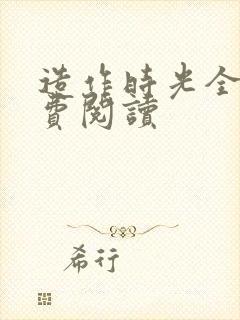 造作時光全
費閱讀
希行